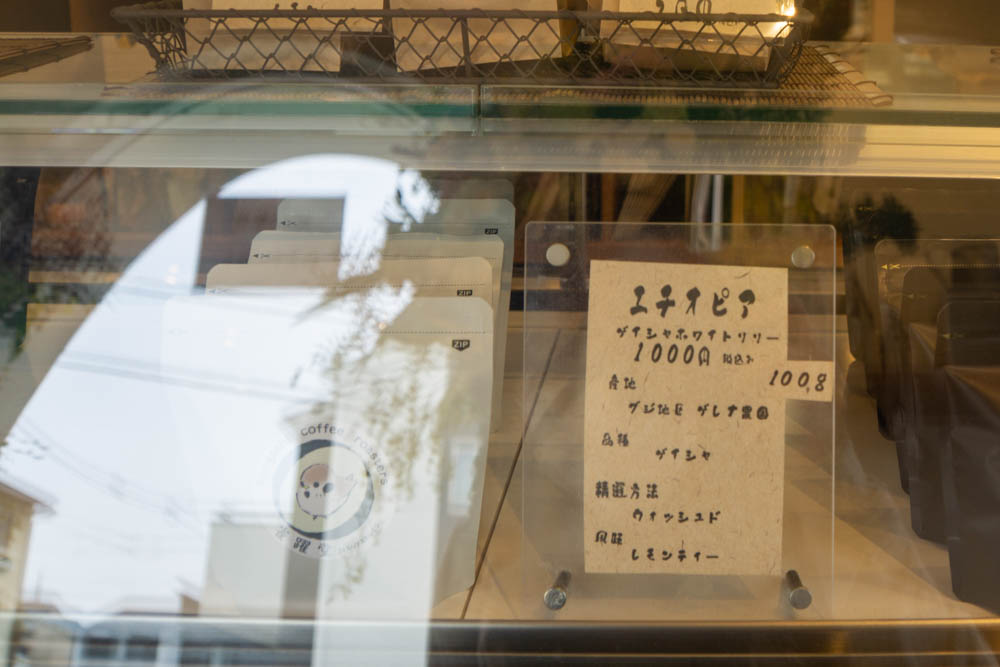 ZIP
ZIP
ZIP
coffee roasters
エチオピア
ゲイシャホワイトリリー
1000円 税込み
100g
産地
グジ地区 ゲレナ農園
品種
ゲイシャ
精選方法
ウォッシュド
風味
レモンティー